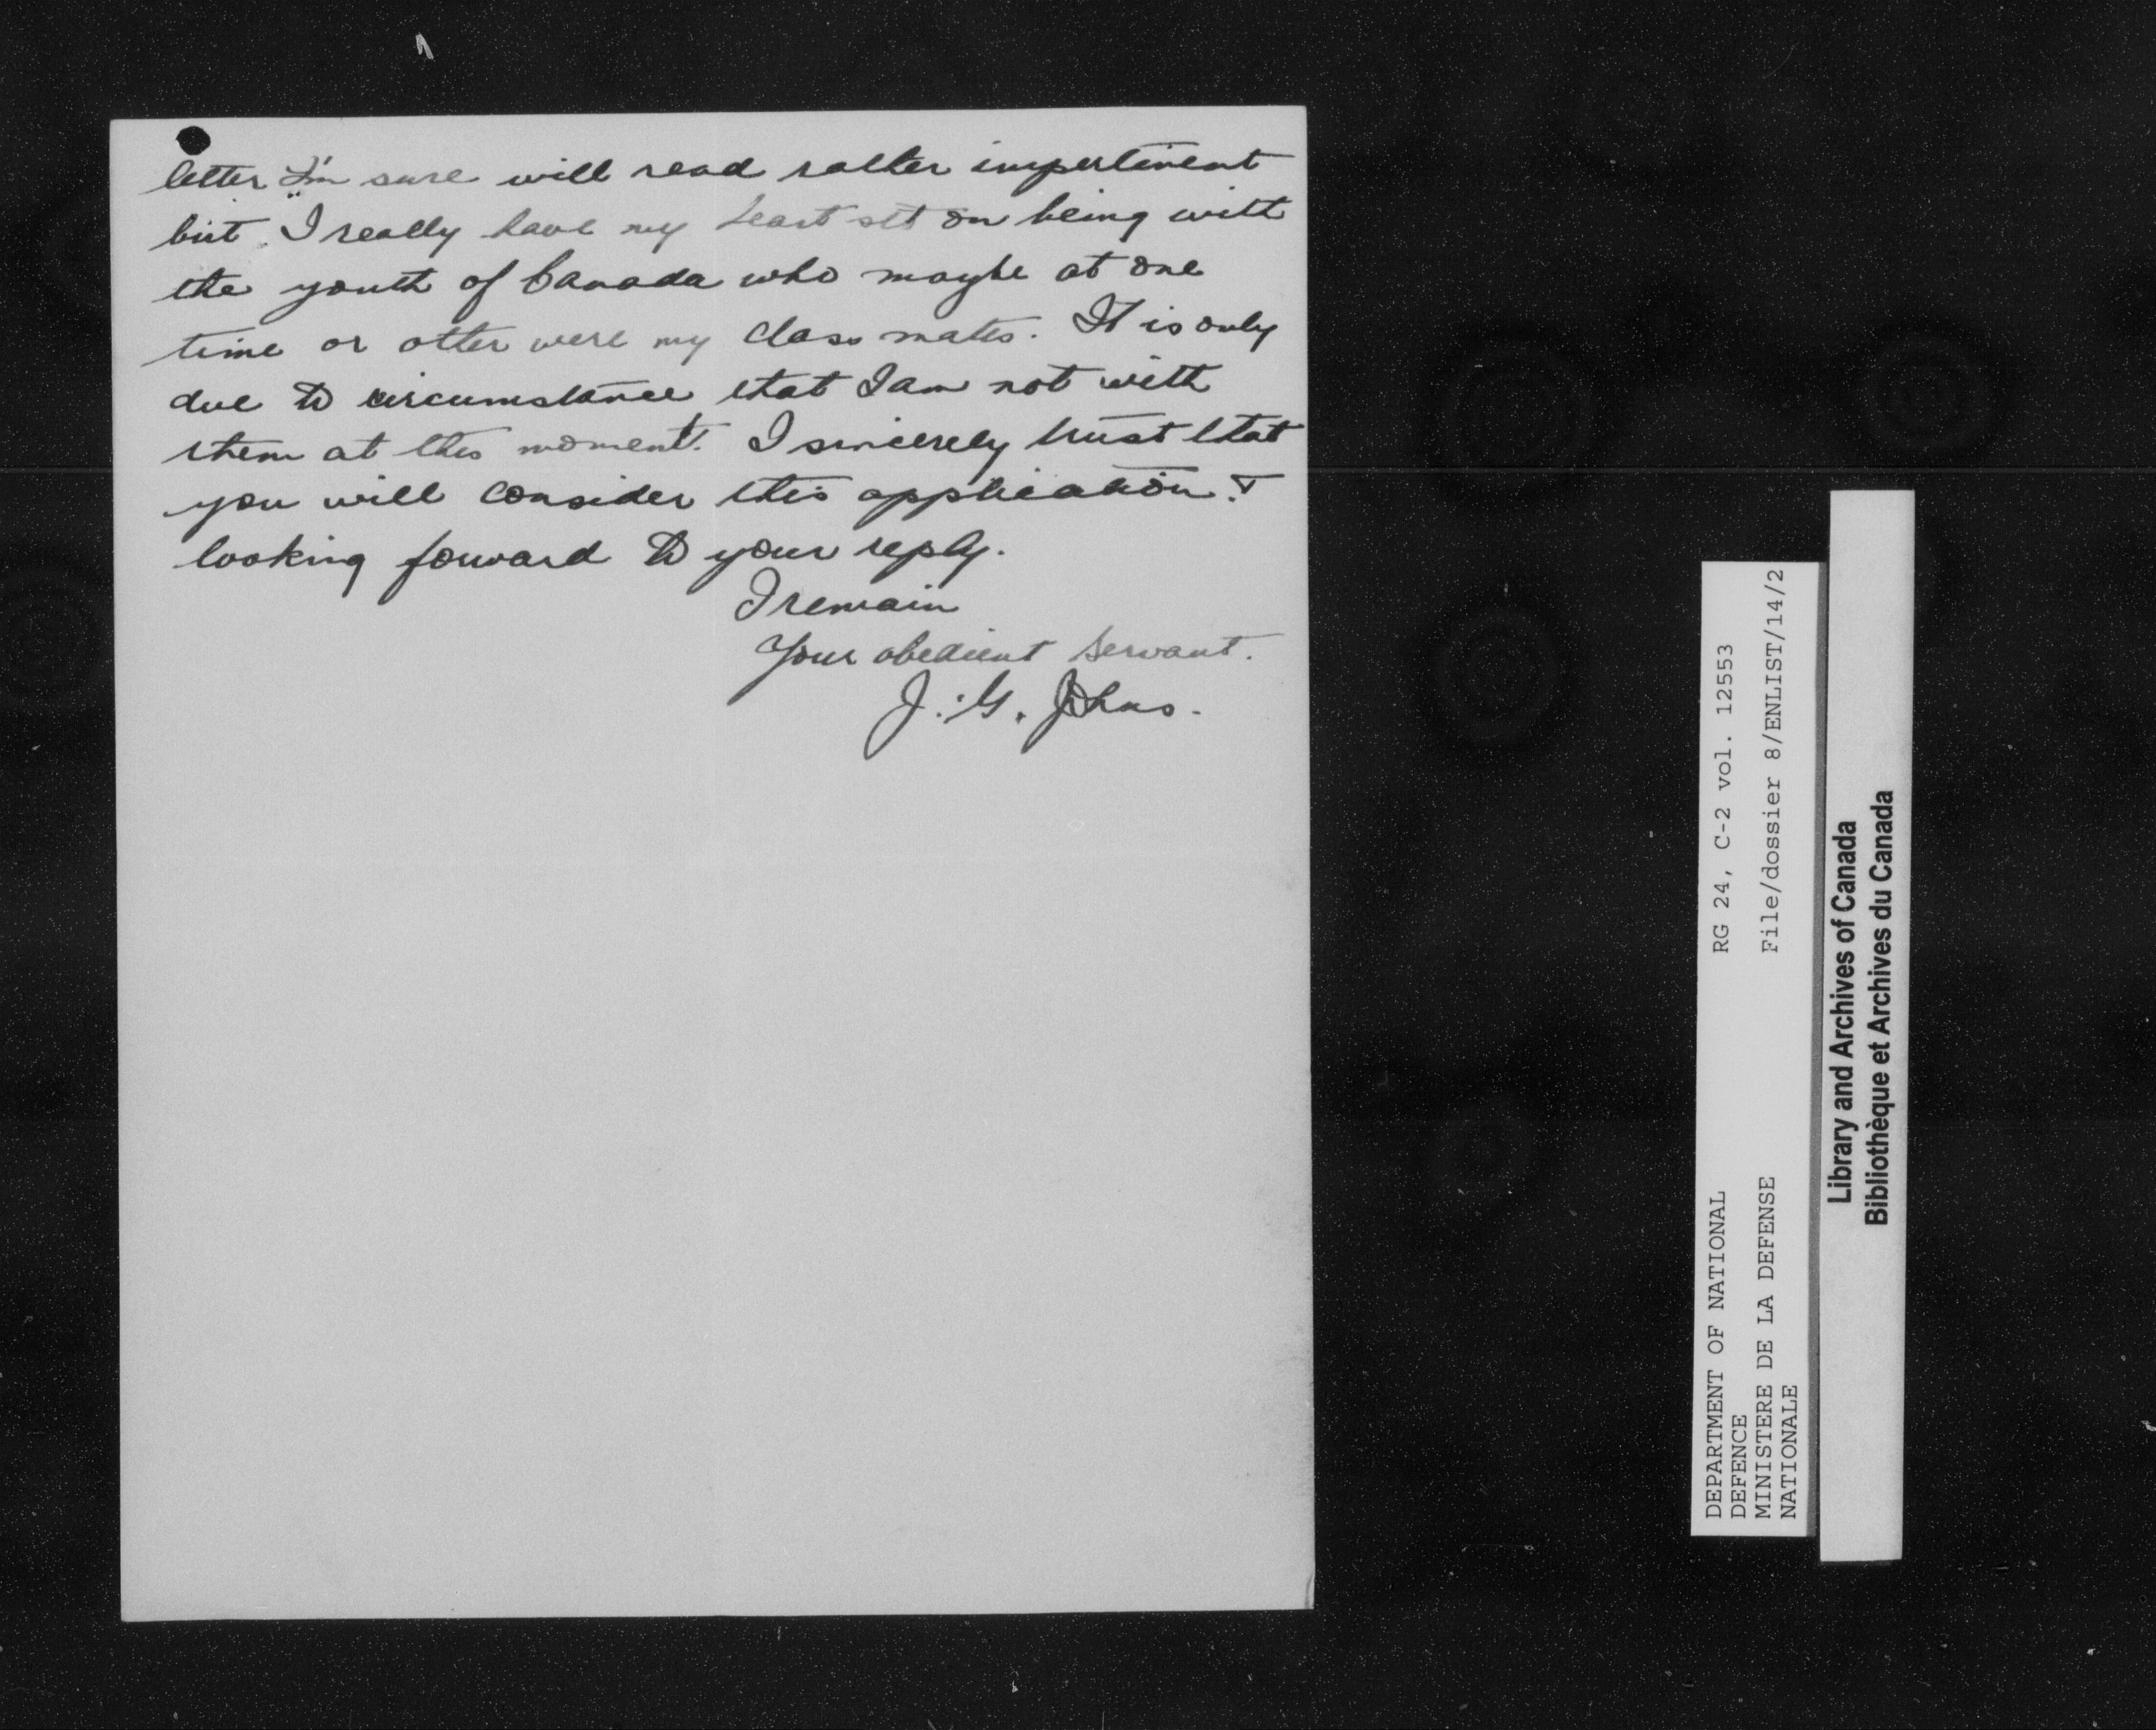 letter I'm sure will read rather impertinent
but I really have my heart set on being with
the youth of Canada who maybe at one
time or other were my class mates. It is only
due to circumstance that I am not with
them at this moment. I sincerely trust that
you will consider this application. &
looking forward to your reply.
I remain
Your obedient servant.
J. G. Johns.
RG 24, C-2 vol. 12553
File/dossier 8/ENLIST/14/2
DEPARTMENT OF NATIONAL
DEFENCE
MINISTERE DE LA DEFENSE
NATIONALE
Library and Archives of Canada
Bibliothèque et Archives du Canada